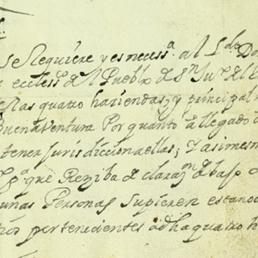 se Requiere y es necess.ª al S.r
eccless.co del Pueblo de S.n Ju.º del
las quatro haciendas, y principal
Buenaventura Por quanto a llegado
tener Jurisdiccion a ellas; Y asimesm
que Reziba declaraz.n debajo
unas Personas Supieren estancia
pertenecientes a dha quatro h